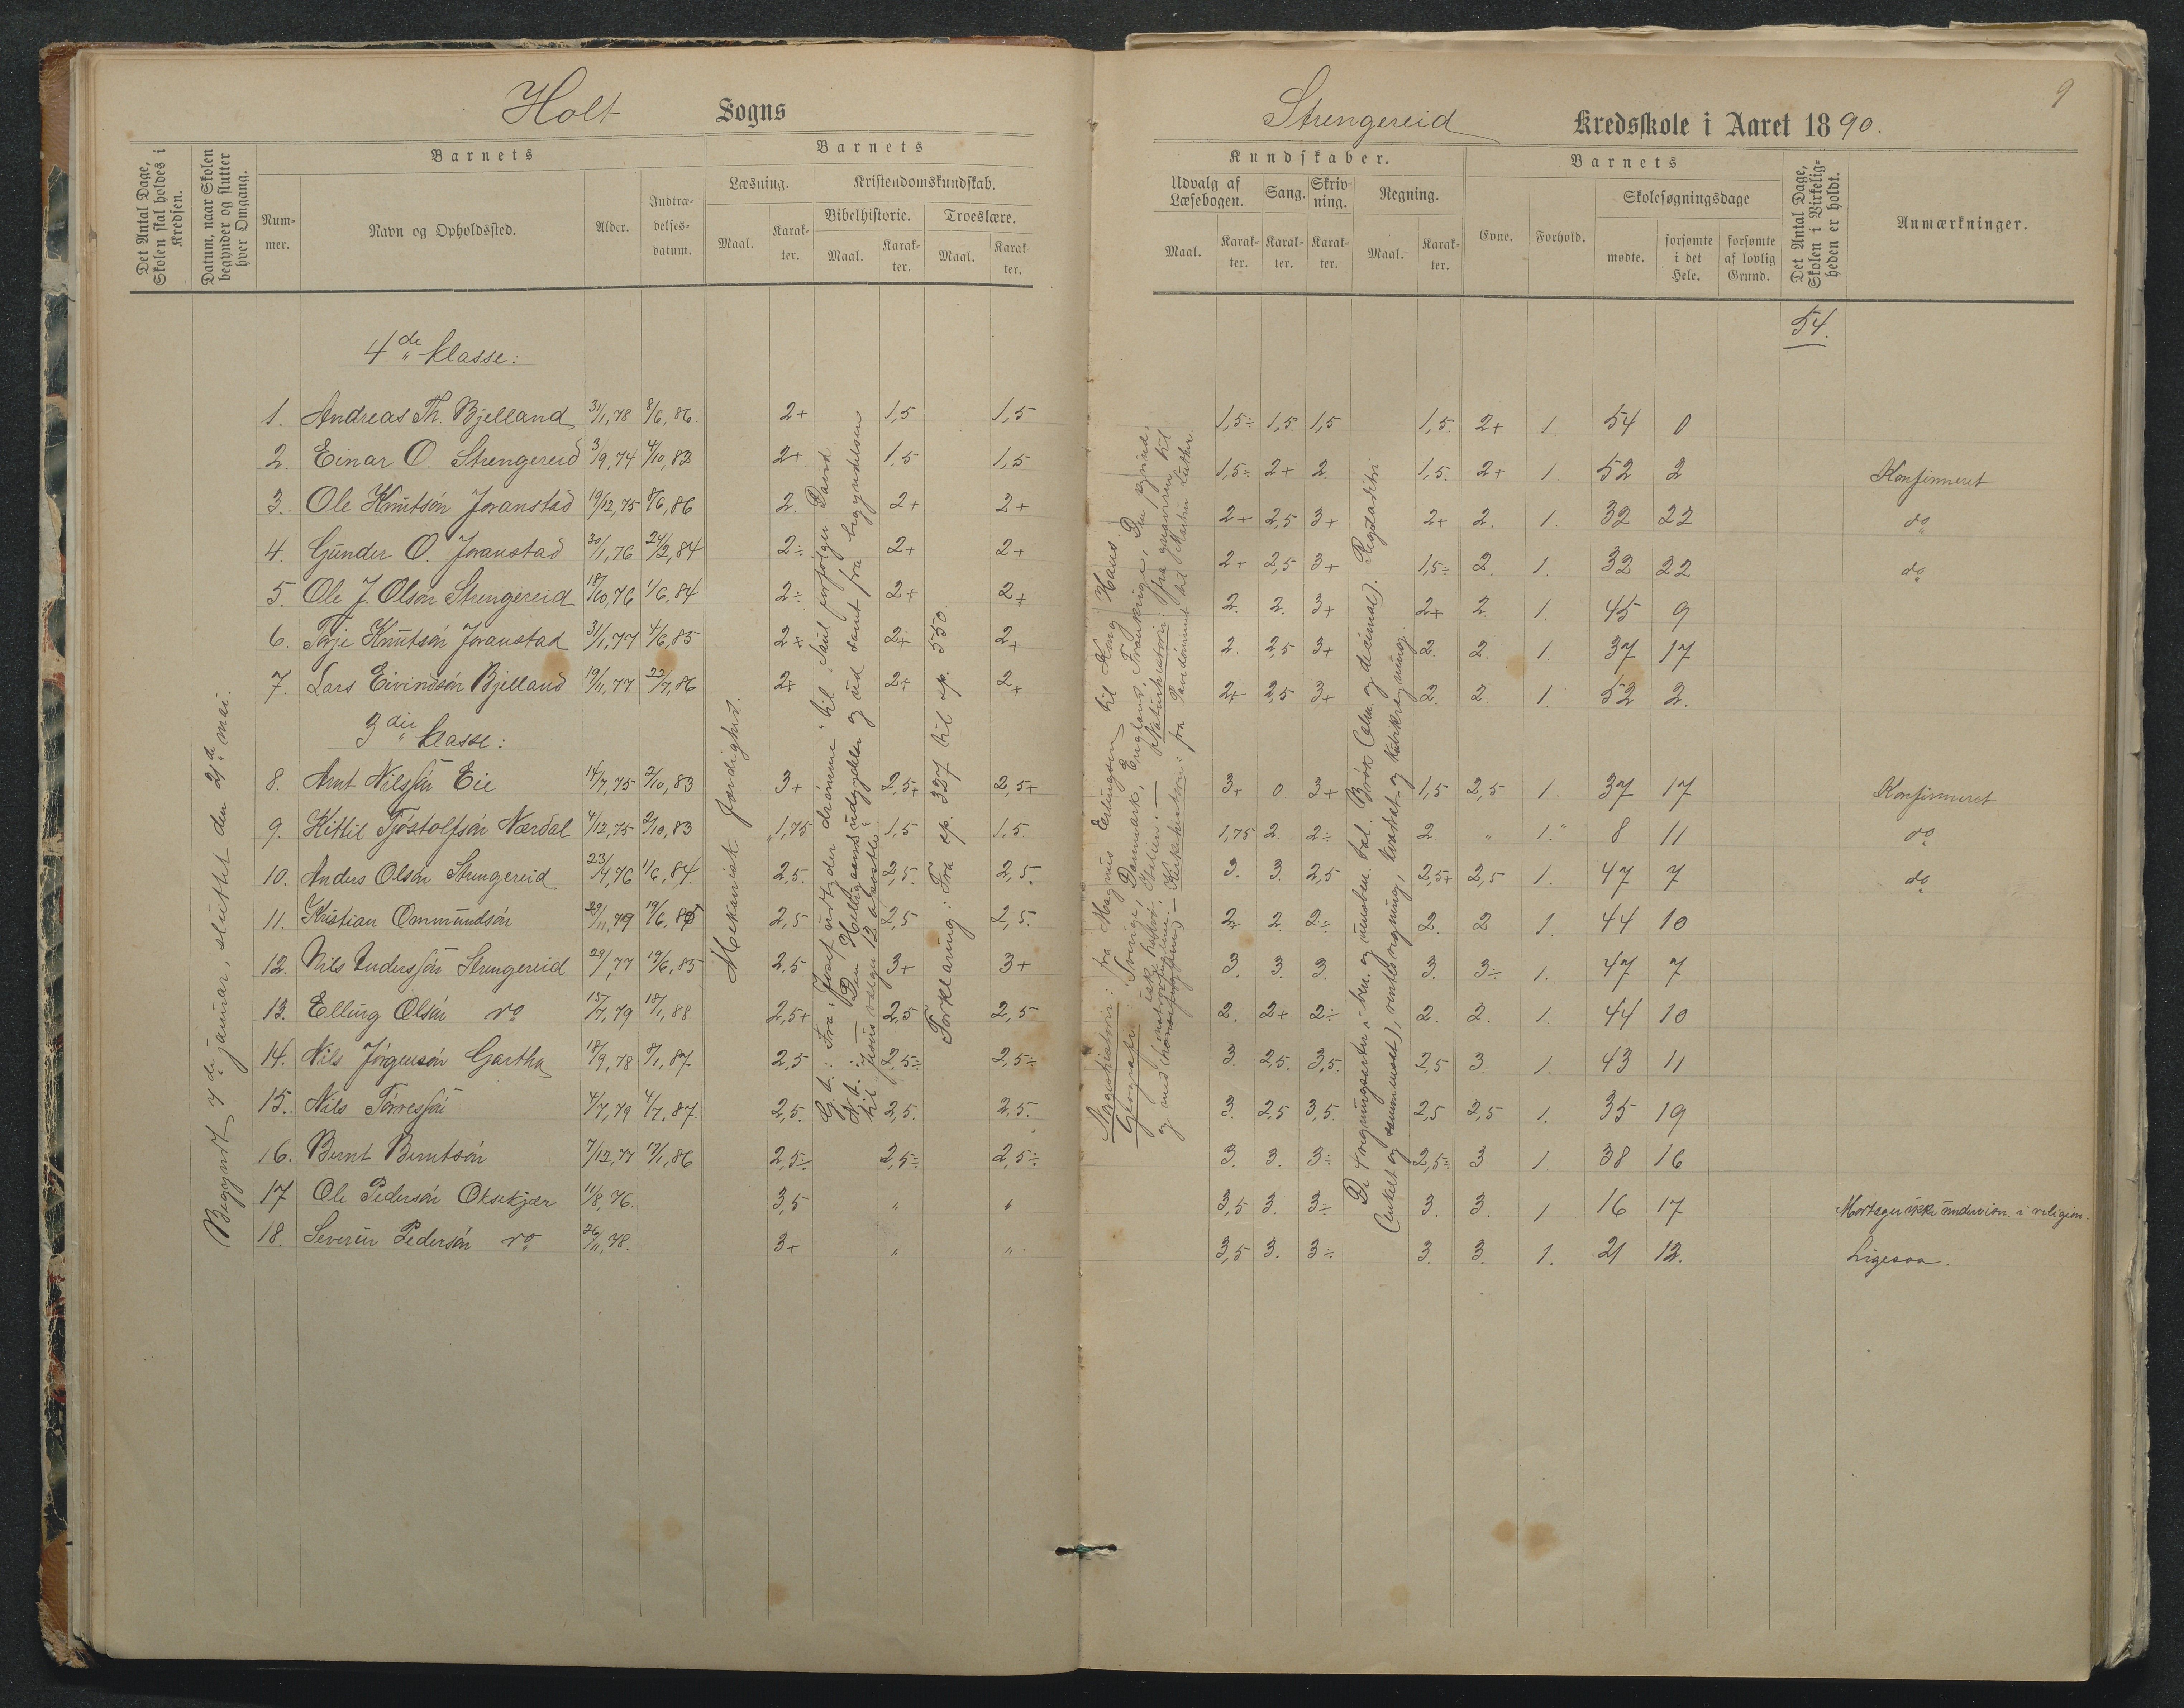 Holt Sogns
Strengereid Kredsskole i Aaret 1890.
9
Det Antal Dage, Skolen skal holdes i Kredsen.
Datum, naar Skolen begynder og slutter hver Omgang.
Barnets
Nummer.
Navn og Opholdssted.
Alder.
Indtrædelsesdatum.
Barnets
Læsning.
Maal.
Karakter.
Kristendomskundskab.
Bibelhistorie.
Maal.
Karakter.
Troeslære.
Maal.
Karakter.
Kundskaber.
Udvalg af Læsebogen.
Maal.
Karakter.
Sang.
Karakter.
Skrivning.
Karakter.
Regning.
Maal.
Karakter.
Barnets
Evne.
Forhold.
Skolesøgningsdage
mødte.
forsømte i det Hele.
forsømte af lovlig Grund.
Det Antal Dage, Skolen i Virkeligheden er holdt.
Anmærkninger.
54.
Begyndt 7de januar, sluttet den 21de mai.
4de klasse:
1. Andreas Th. Bjelland 31/1,78 8/6,86. 2+ 1,5 1,5 1,5÷ 1,5. 1,5 1,5. 2+ 1 54 0
2. Einar O. Strengereid 3/9,74 4/10,83 2+ 1,5 1,5 1,5÷ 2+ 2. 1,5. 2+ 1. 52 2 Konfirmeret
3. Ole Knutsón Joranstad 19/12,75 8/6,86 2. 2+ 2+ 2+ 2,5 3+ 2+ 2. 1. 32 22 do
4. Gunder O. Joranstad 30/1,76 24/2,84 2÷ 2+ 2+ 2+ 2,5 3+ 1,5÷ 2. 1. 32 22 do
5. Ole J. Olsón Strengereid 18/10,76 1/6,84 2÷ 2+ 2+ 2. 2. 3+ 2+ 2. 1. 45 9
6. Torje Knutsón Joranstad 31/1,77 4/6,85 2÷ 2+ 2+ 2. 2,5 3+ 2. 2. 1. 37 17
7. Lars Eivindsón Bjelland 19/11,77 23/7,86 2+ 2+ 2+ 2+ 2,5 3+ 2. 2 1 52 2.
3die klasse:
8. Arnt Nilssón Eie 14/7,75 2/10,83 3+ 2,5+ 2,5+ 3+ 0 3+ 1,5 2,5 1. 37 17 Konfirmeret
9. Kittil Tjóstolfsón Nærdal 4/12,75 2/10,83 1,75 1,5 1,5. 1,75 2. 2÷ 2 " 1." 8 11 do
10. Anders Olsón Strengereid 23/4,76 1/6,84. 2,5. 2,5. 2,5. 3. 3. 2,5 2,5+ 2,5 1. 47 7 do
11. Kristian Ommundsón 29/11,79 19/6,87 2,5 2,5 2,5. 2+ 2. 2÷ 2. 2 1. 44 10
12. Nils Anderssón Strengereid 29/1,77 19/6,85 2,5 3+ 3+ 3. 3. 3. 3. 3÷ 1. 47 7
13. Elling Olsón do 15/7,79 18/1,88 2,5+ 2,5 2,5 2. 2+ 2÷ 2. 2. 1. 44 10
14. Nils Jórgensón Gartha 18/9,78 8/1,87 2,5 2,5÷ 2,5÷ 3. 2,5. 3,5. 2,5 3. 1. 43 11
15. Nils Tórressón 4/7,79 4/7,87. 2,5. 2,5. 2,5. 3. 2,5 3,5. 2,5 2,5 1. 35 19
16. Bernt Berntsón 7/12,77 17/1,86 2,5÷ 2,5÷ 2,5÷ 3. 3. 3÷ 2,5÷ 3 1. 38 16
17 Ole Pedersón Oksekjær 11/8,76. 3,5 " " 3,5 3. 3÷ 3. 3. 1 16 17 Mortager ikke undervisn. i religion.
18. Severin Pedersón do 26/11,78. 3+ " ". 3,5 3. 3÷ 3. 3. 1. 21 12. Ligesaa.
Mekanisk færdighed.
G. t.: Fra „Josef udtyder drømme" til „Saul forfølger David.
N. t.: — „Den Helligaands udgydelse og ud samt fra begyndelsen
til „Jesus vælger 12 apostle."
Forklaring: Fra sp. 327 til sp. 550.
Sagahistorie: fra Magnus Erlingsøn til Kong Hans.
Geografi: Sverige, Danmark, England, Frankrige, Den pyrenæ-
iske halvø, Italien. — Naturhistorie: fra
Kirkehistorie: fra Pavedømmet til Martin Luther.
De 4 regningsarter i ben. og ubeben. tal. Brök (alm. og decimal). Reguladetri
(enkelt og sammensat), rentesregning, kvadrat- og kubikregning.